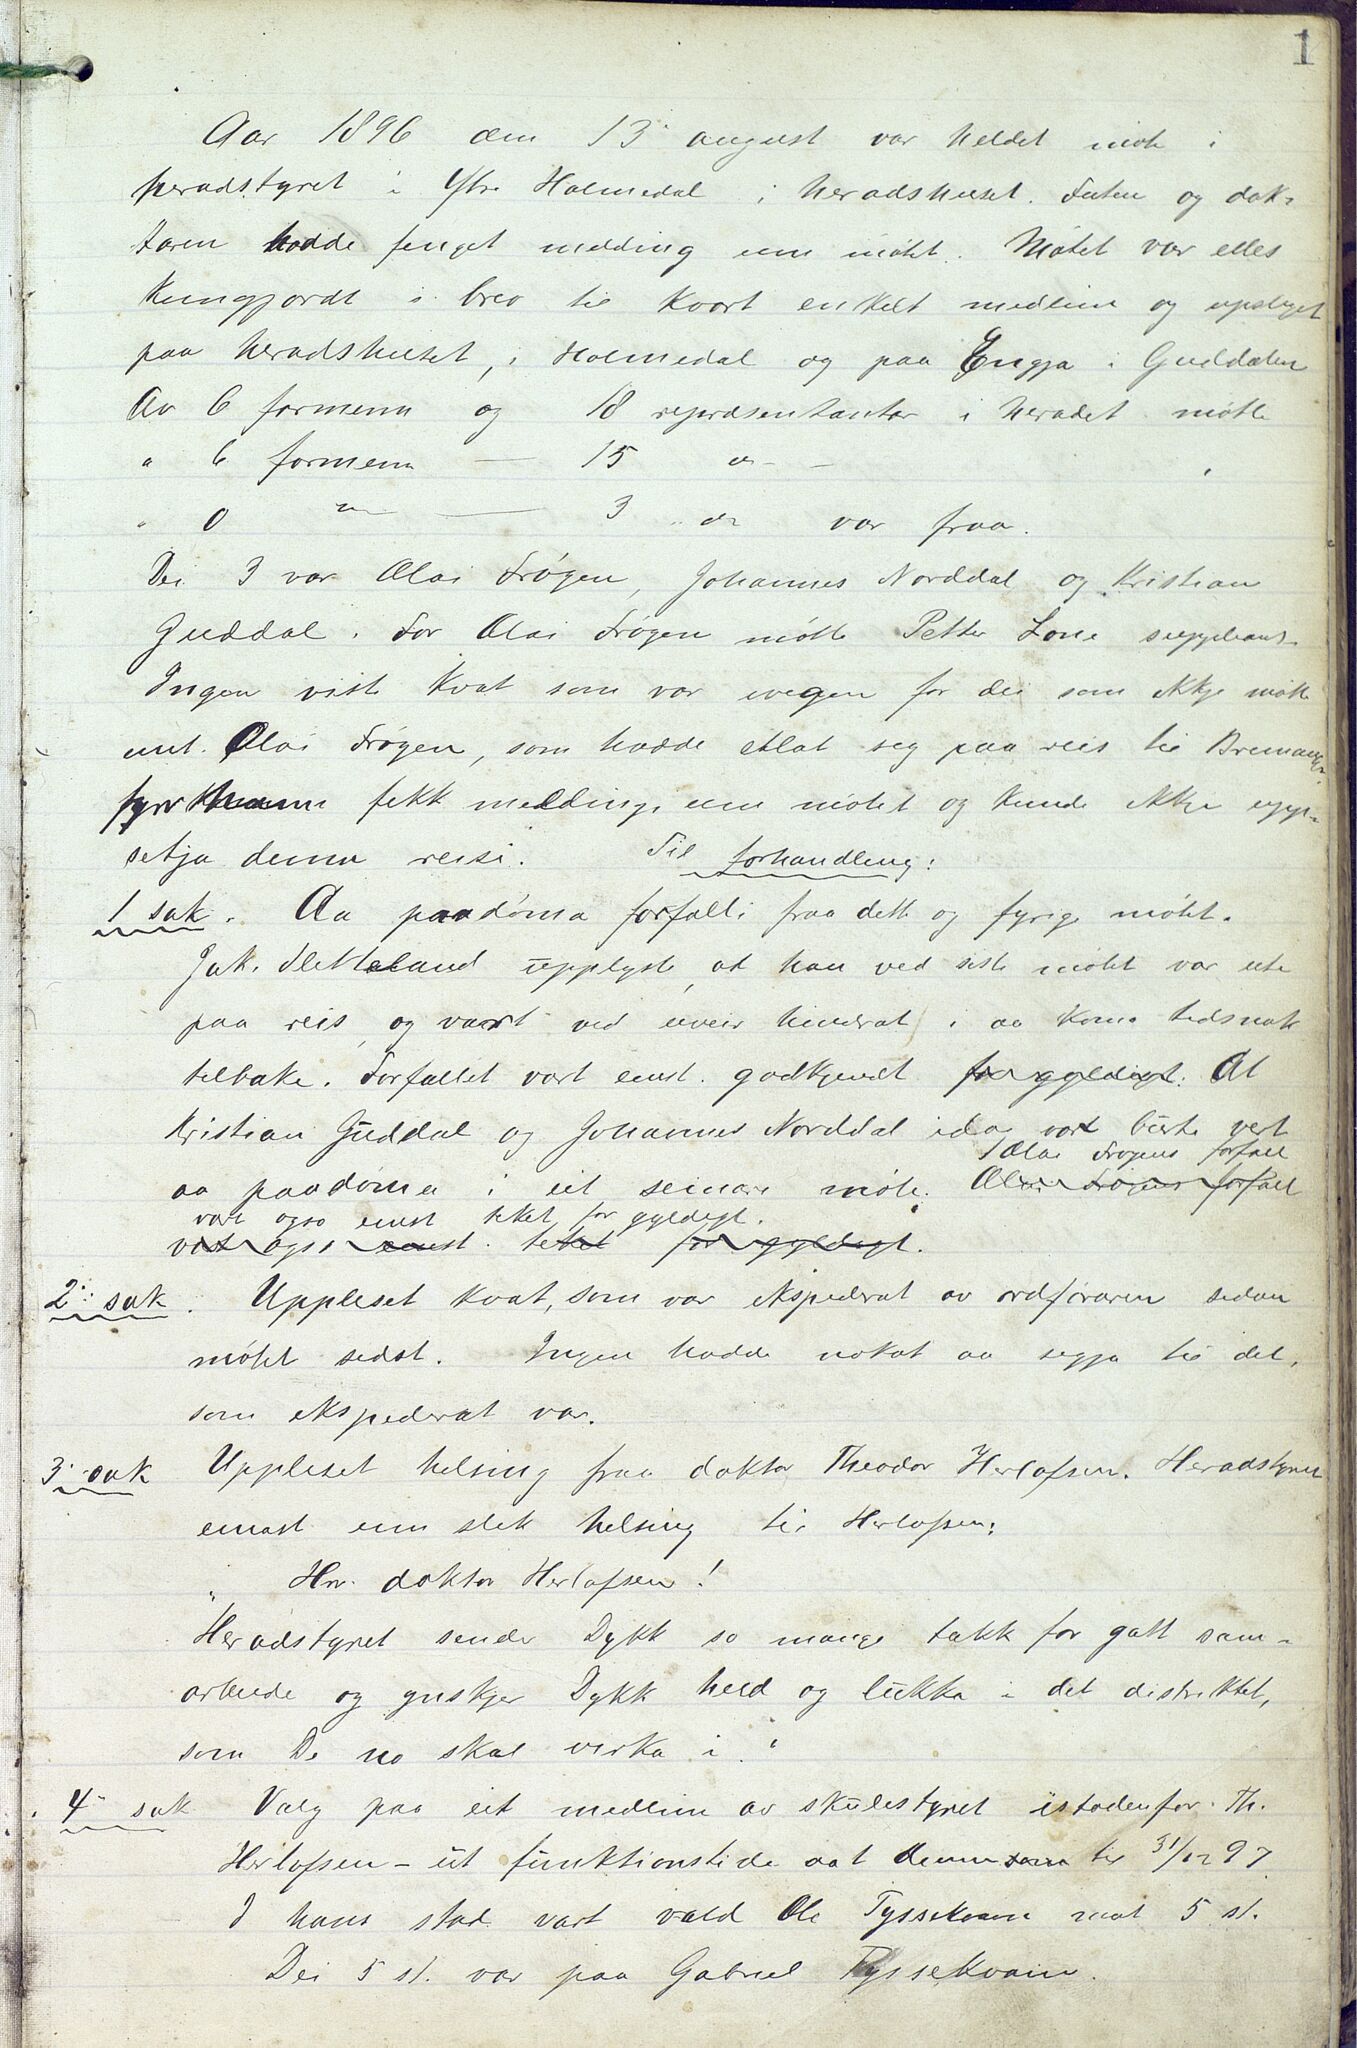 1
Aar 1896 den 13 august var heldet møte i
heradstyret i Ytre Holmedal i heradshuset. Futen og dok-
taren hadde fenget melding um møtet. Møtet var elles
kungjordt i brev til kvart enkelt medlem og upslaget
paa heradshuset, i Holmedal og paa Engja i Guddalen
Av 6 formenn og 18 repræsentantar i heradet møtte
" 6 formenn — 15 do -
" 0 " — 3 " do var fraa.
Dei 3 var Olai Frøyen, Johannes Norddal og Kristian
Guddal. For Olai Frøyen møtte Petter Lone suppleant.
Ingen viste kvat som var ivegen for dei som ikkje møtte
unt. Olai Frøyen, som hadde etlat seg paa reis til Bremanger
fyrr han fekk melding um møtet og kunde ikkje upp-
setja denne reisi. Til forhandling:
1 sak. Aa paadøma forfalli fraa dette og fyrige møtet.
Jak. Sletteland upplyste, at han ved siste møtet var ute
paa reis, og vart ved uveir hindrat i aa koma tidsnok
tilbake. Forfallet vart einst. godkjendt for gyldigt. At
Kristian Guddal og Johannes Norddal ida vart burte vert
aa paadøma i eit seinare møte. Olai Frøyens forfall
Olai Frøyens forfall
var ogso einst teket for gyldigt.
vart ogso einst. teket for gyldigt.
2 sak. Uppleset kvat, som var ekspederat av ordføraren sidan
møtet sidst. Ingen hadde nokot aa segja til det,
som ekspederat var.
3 sak Uppleset helsing fraa doktor Theodor Herlofsen. Heradstyret
einast um slik helsing til Herlofsen:
" Hr. doktor Herlofsen!
Heradstyret sender Dykk so mange takk for gott sam-
arbeide og ynskjer Dykk held og lukka i det distriktet,
som De no skal virka i."
4 sak Valg paa eit medlem av skulestyret istadenfor Th.
Herlofsen – eit funktionstide aat denne til 31/12 97.
I hans stad vart vald Ole Tyssekvam mot 5 st.
Dei 5 st. var paa Gabriel Tyssekvam.